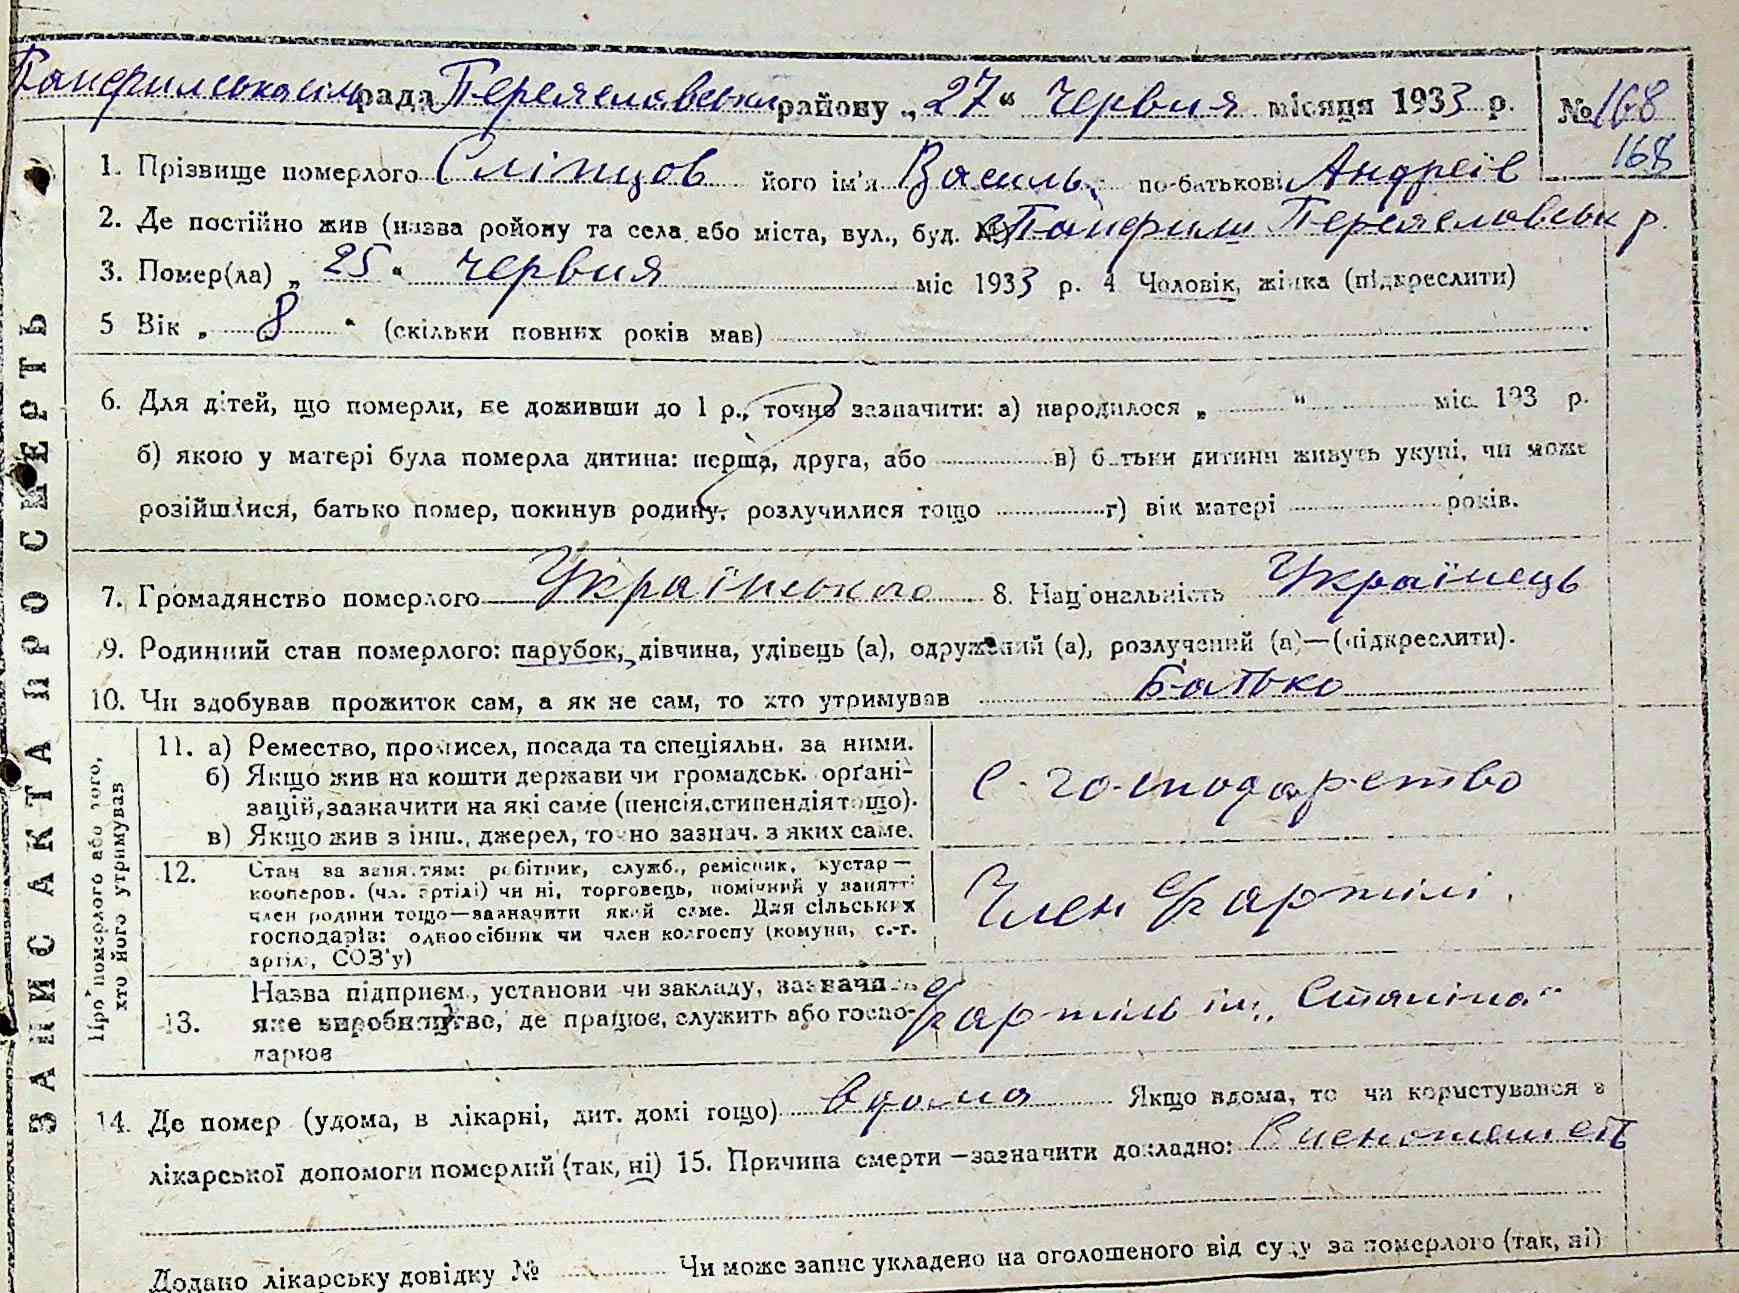 Панфильська сіль рада Переяславськ району „27“ Червня місяця 1933 р. № 168
168
1. Прізвище померлого Сліпцов його ім'я Василь по-батькові Андреїв
2. Де постійно жив (назва ройону та села або міста, вул., буд. №) с Панфили Переяславськ р.
3. Помер(ла) „25“ червня міс 1933 р. 4 Чоловік, жінка (підкреслити)
5 Вік „8“ (скільки повних років мав)
6. Для дітей, що померли, не доживши до 1 р., точно зазначити: а) народилося „ “ міс. 193 р.
б) якою у матері була померла дитина: перша, друга, або в) батьки дитини живуть укупі, чи може
розійшлися, батько помер, покинув родину, розлучилися тощо г) вік матері років.
7. Громадянство померлого Українського 8. Національність Українець
9. Родинний стан померлого: парубок, дівчина, удівець (а), одружений (а), розлучений (а)—(підкреслити).
10. Чи здобував прожиток сам, а як не сам, то хто утримував Батько
11. а) Ремество, промисел, посада та спеціяльн. за ними.
б) Якщо жив на кошти держави чи громадськ. орґані-
зацій, зазначити на які саме (пенсія, стипендія тощо).
в) Якщо жив з інш., джерел, точно зазнач. з яких саме.
с-господарство
12. Стан за заняттям: робітник, служб., ремісник, кустар —
кооперов. (чл. артілі) чи ні, торговець, помічний у занятті
член родини тощо—зазначити який саме. Для сільських
господарів: одноосібник чи член колгоспу (комуни, с.-г.
артілі, СОЗ'у)
Член с/г артілі.
13. Назва підприєм., установи чи закладу, зазначить
яке виробництво, де працює, служить або госпо-
дарює
с/г артіль ім. „Сталіна“
Про померлого або того,
хто його утримував
14. Де помер (удома, в лікарні, дит. домі тощо) вдома Якщо вдома, то чи користувався з
лікарської допомоги померлий (так, ні) 15. Причина смерти — зазначити докладно:
Додано лікарську довідку № Чи може запис укладено на оголошеного від суду за померлого (так, ні)
ЗАПИС АКТА ПРО СМЕРТЬ